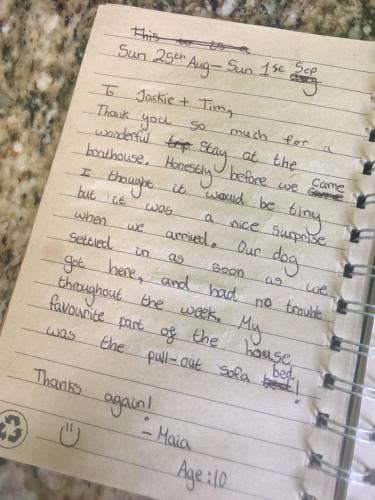 This is a
Sun 25th Aug - Sun 1st Sep
To Jackie + Tim,
Thank you so much for a
wonderful trip stay at the
boathouse. Honestly before we came
I thought it would be tiny
but it was a nice surprise
when we arrived. Our dog
settled in as soon as we
got here, and had no trouble
throughout the week. My
favourite part of the house
was the pull-out sofa bed!
Thanks again!
- Maia
Age: 10